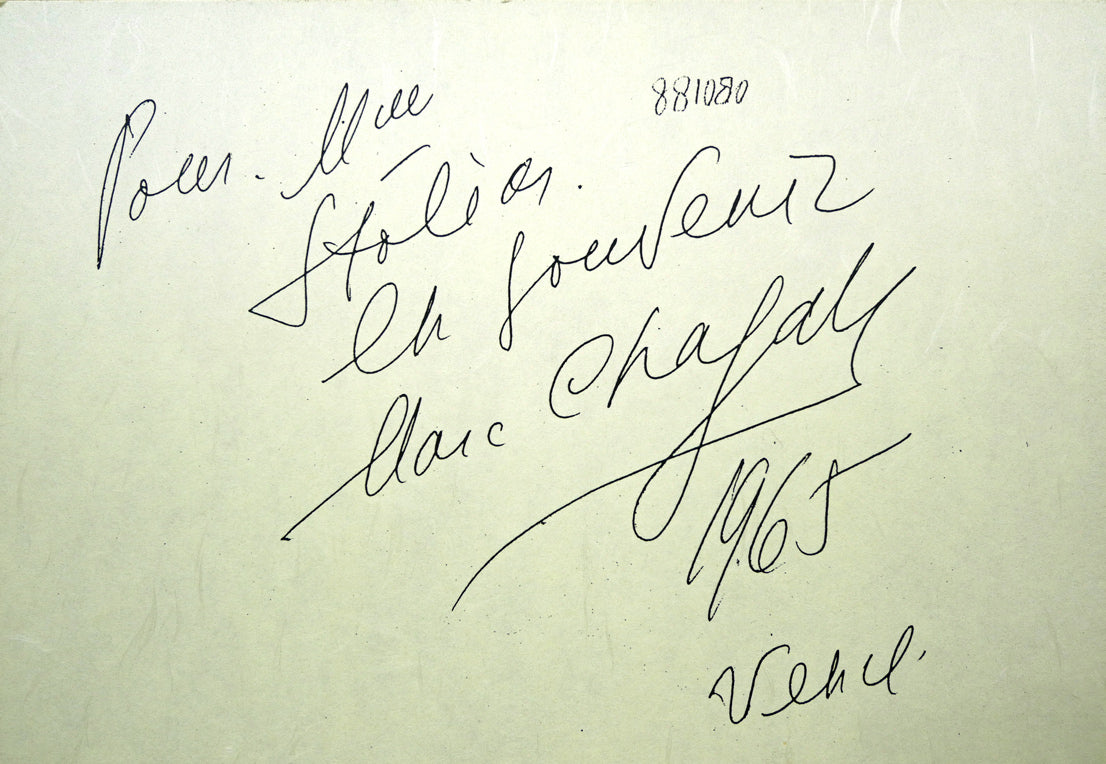 Pour Mme
881080
Stoliar.
en souvenir
Marc Chagall
1965
Vence